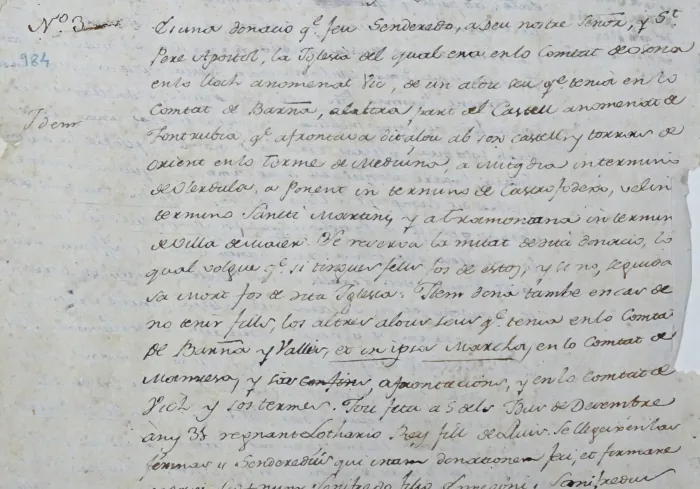 Nº 3
984
Idem
Es una donació qe. feu Senderedo, a Deu nostre Señor, y St.
Pere Apostol, la Iglesia del qual era en lo Comtat de osona
en lo lloch anomenat Vic, de un alou seu qe. tenia en lo
Comtat de Barña, a la altra part del Castell anomenat de
Fontrubia qe. afrontava dit alou ab son castell y torres de
orient en lo terme de Mediona, a Mitgdia in termino
de Verdula, a Ponent in termino de Castro fodero, vel in
termino Sancti Martini, y a tramontana in termino
de Villa de Maier. Se reserva la mitat de dita donació, lo
qual volgue qe. si tingues fills fos de estos; y si no, seguida
sa mort fos de dita Iglesia. Item dona també en cas de
no tenir fills, los altres alous seus qe. tenia en lo Comtat
de Barña y Valles, et in ipsa Marcha, en lo Comtat de
Manresa, y sos confins, afrontacions, y en lo Comtat de
Vich y sos termes. Fou feta a 5 dels Idus de Decembre
añy 31 regnant Lothario Rey fill de Lluis. Se llegeixen las
firmas: Senderedus qui istam donationem feci et firmare